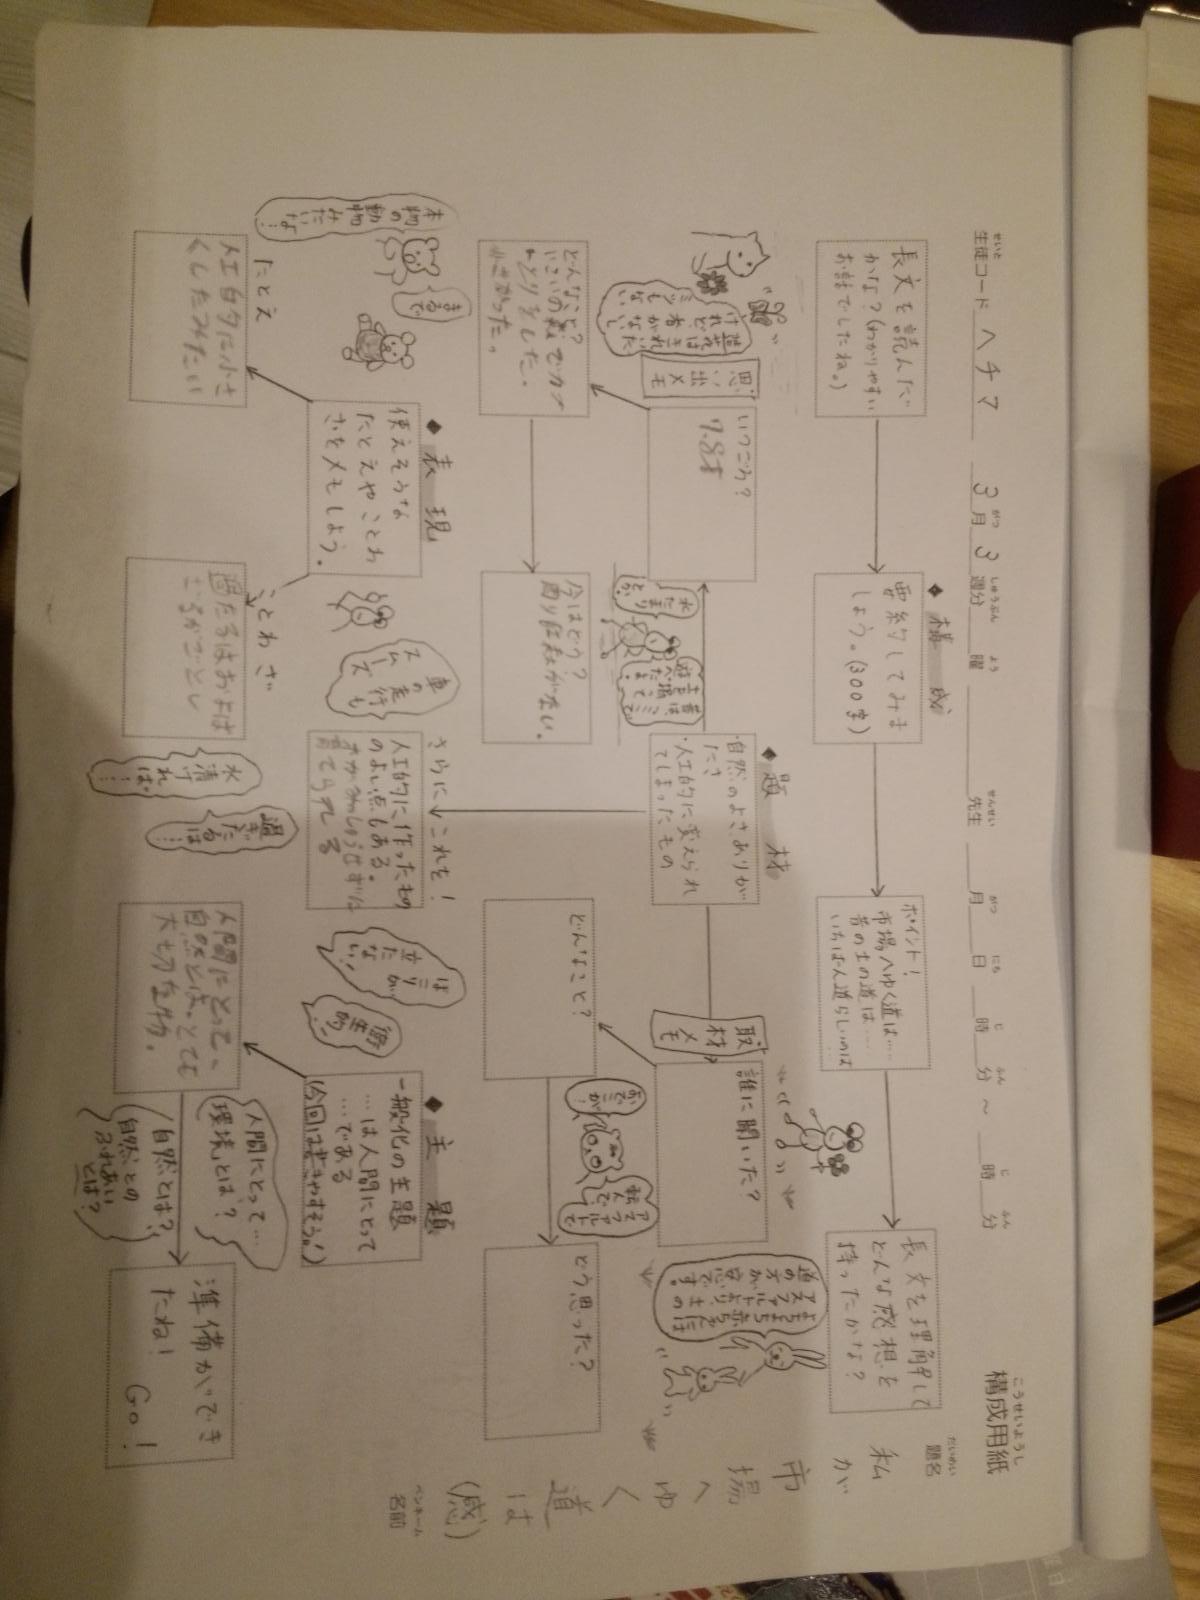 構成用紙
こうせいようし
題名
だいめい
私が市場へゆく道は(感)
ペンネーム
名前
生徒コード ヘチマ 3月3週分 曜 先生 月 日 時 分 〜 時 分
せいと がつ しゅうぶん よう せんせい がつ にち じ ふん じ ふん
長文を読んだ
かな?(わかりやすい
お話でしたね。)
◆構成
要約してみま
しょう。(300字)
ポイント!
市場へゆく道は……
昔の土の道は……
いちばん道らしいのは
長文を理解して
どんな感想を
持ったかな?
造花はきれいだ
けれど、香がないし
ミツもない
思い出メモ
いつごろ?
7.8才
どんなこと?
小さかった。
今はどう?
水たまり
とか
昔はここで
遊んだよ
◆題材
・自然のよさありが
たさ
・人工的に変えられ
てしまったもの
取材メモ
誰に聞いた?
どんなこと?
おでこが!
アスファルトで
転んで
どう思った?
よちよち赤ちゃんには
アスファルトより、土の
道の方が安心です。
さらにこれも!
人工的に作ったもの
のよい点もある。
育てられる
車の走行も
スムーズ
ほこりが
立たない!
衛生的
◆表現
使えそうな
たとえやことわ
ざをメモしよう。
まるで
本物の
動物
みたいな…
たとえ
人工的に小さ
くしたみたい
ことわざ
過たるはおよば
ざるがごとし
水清け
れば…
過ぎ
たるは…
◆主題
一般化の主題
…は人間にとって
…である
(今回は書きやすそう。!)
人間にとって、
自然とは、とても
大切な物。
人間にとって…
環境とは?
自然とは?
自然との
ふれあい
とは?
準備ができ
たね!
GO!